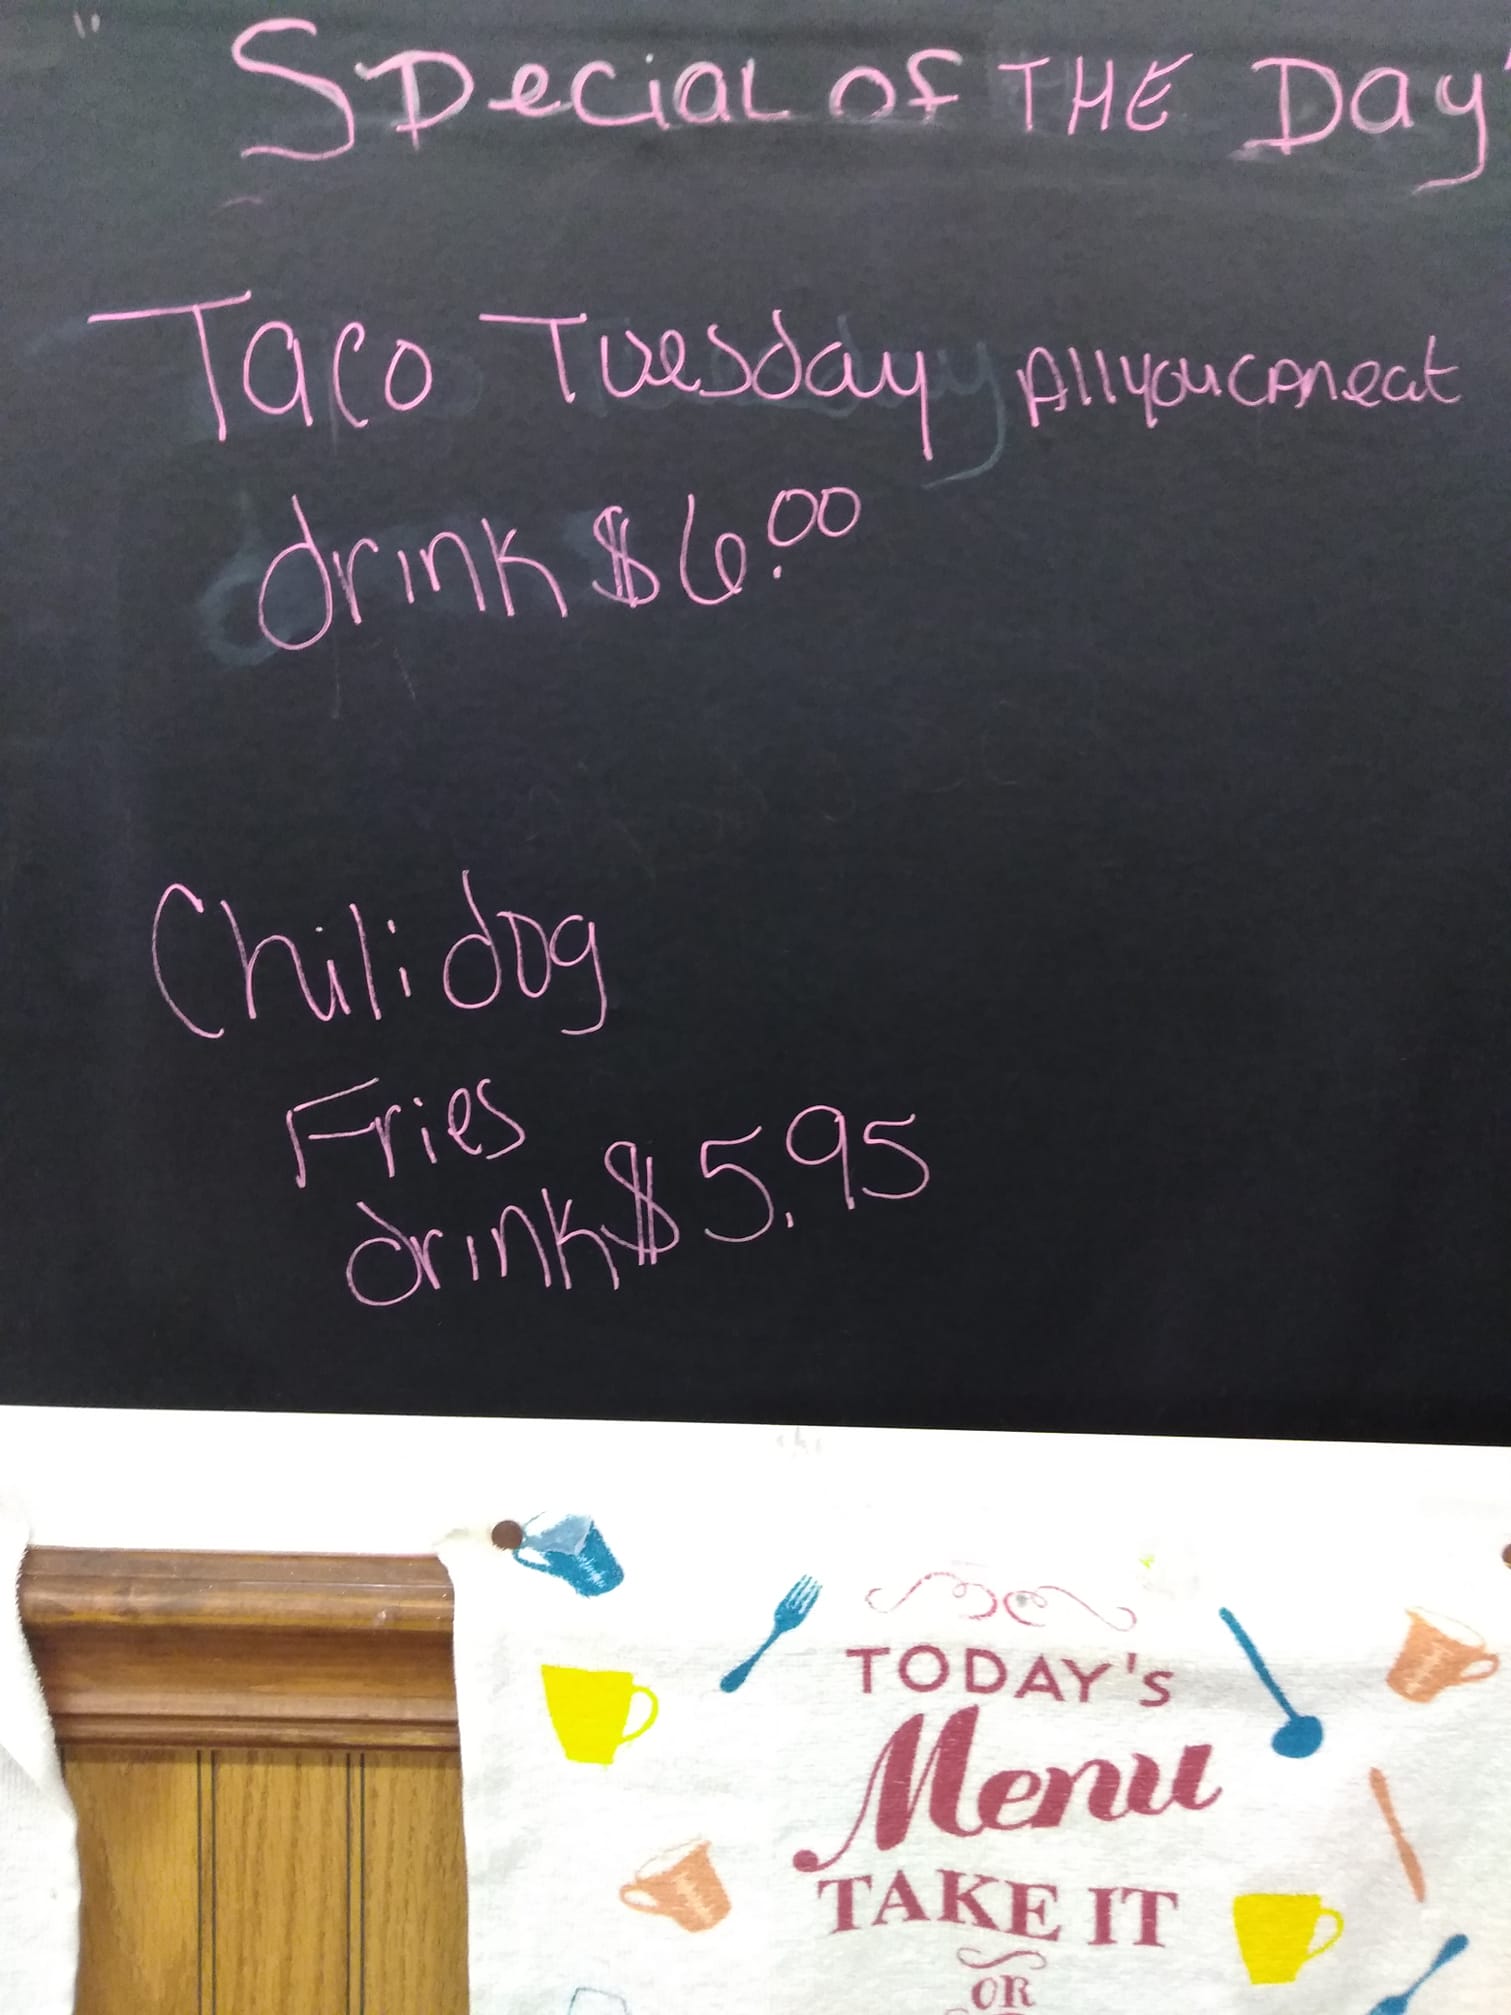 "Special of THE Day"
Taco Tuesday All you can eat
drink $6.00
Chili dog
Fries
drink $5.95
TODAY's
Menu
TAKE IT
OR